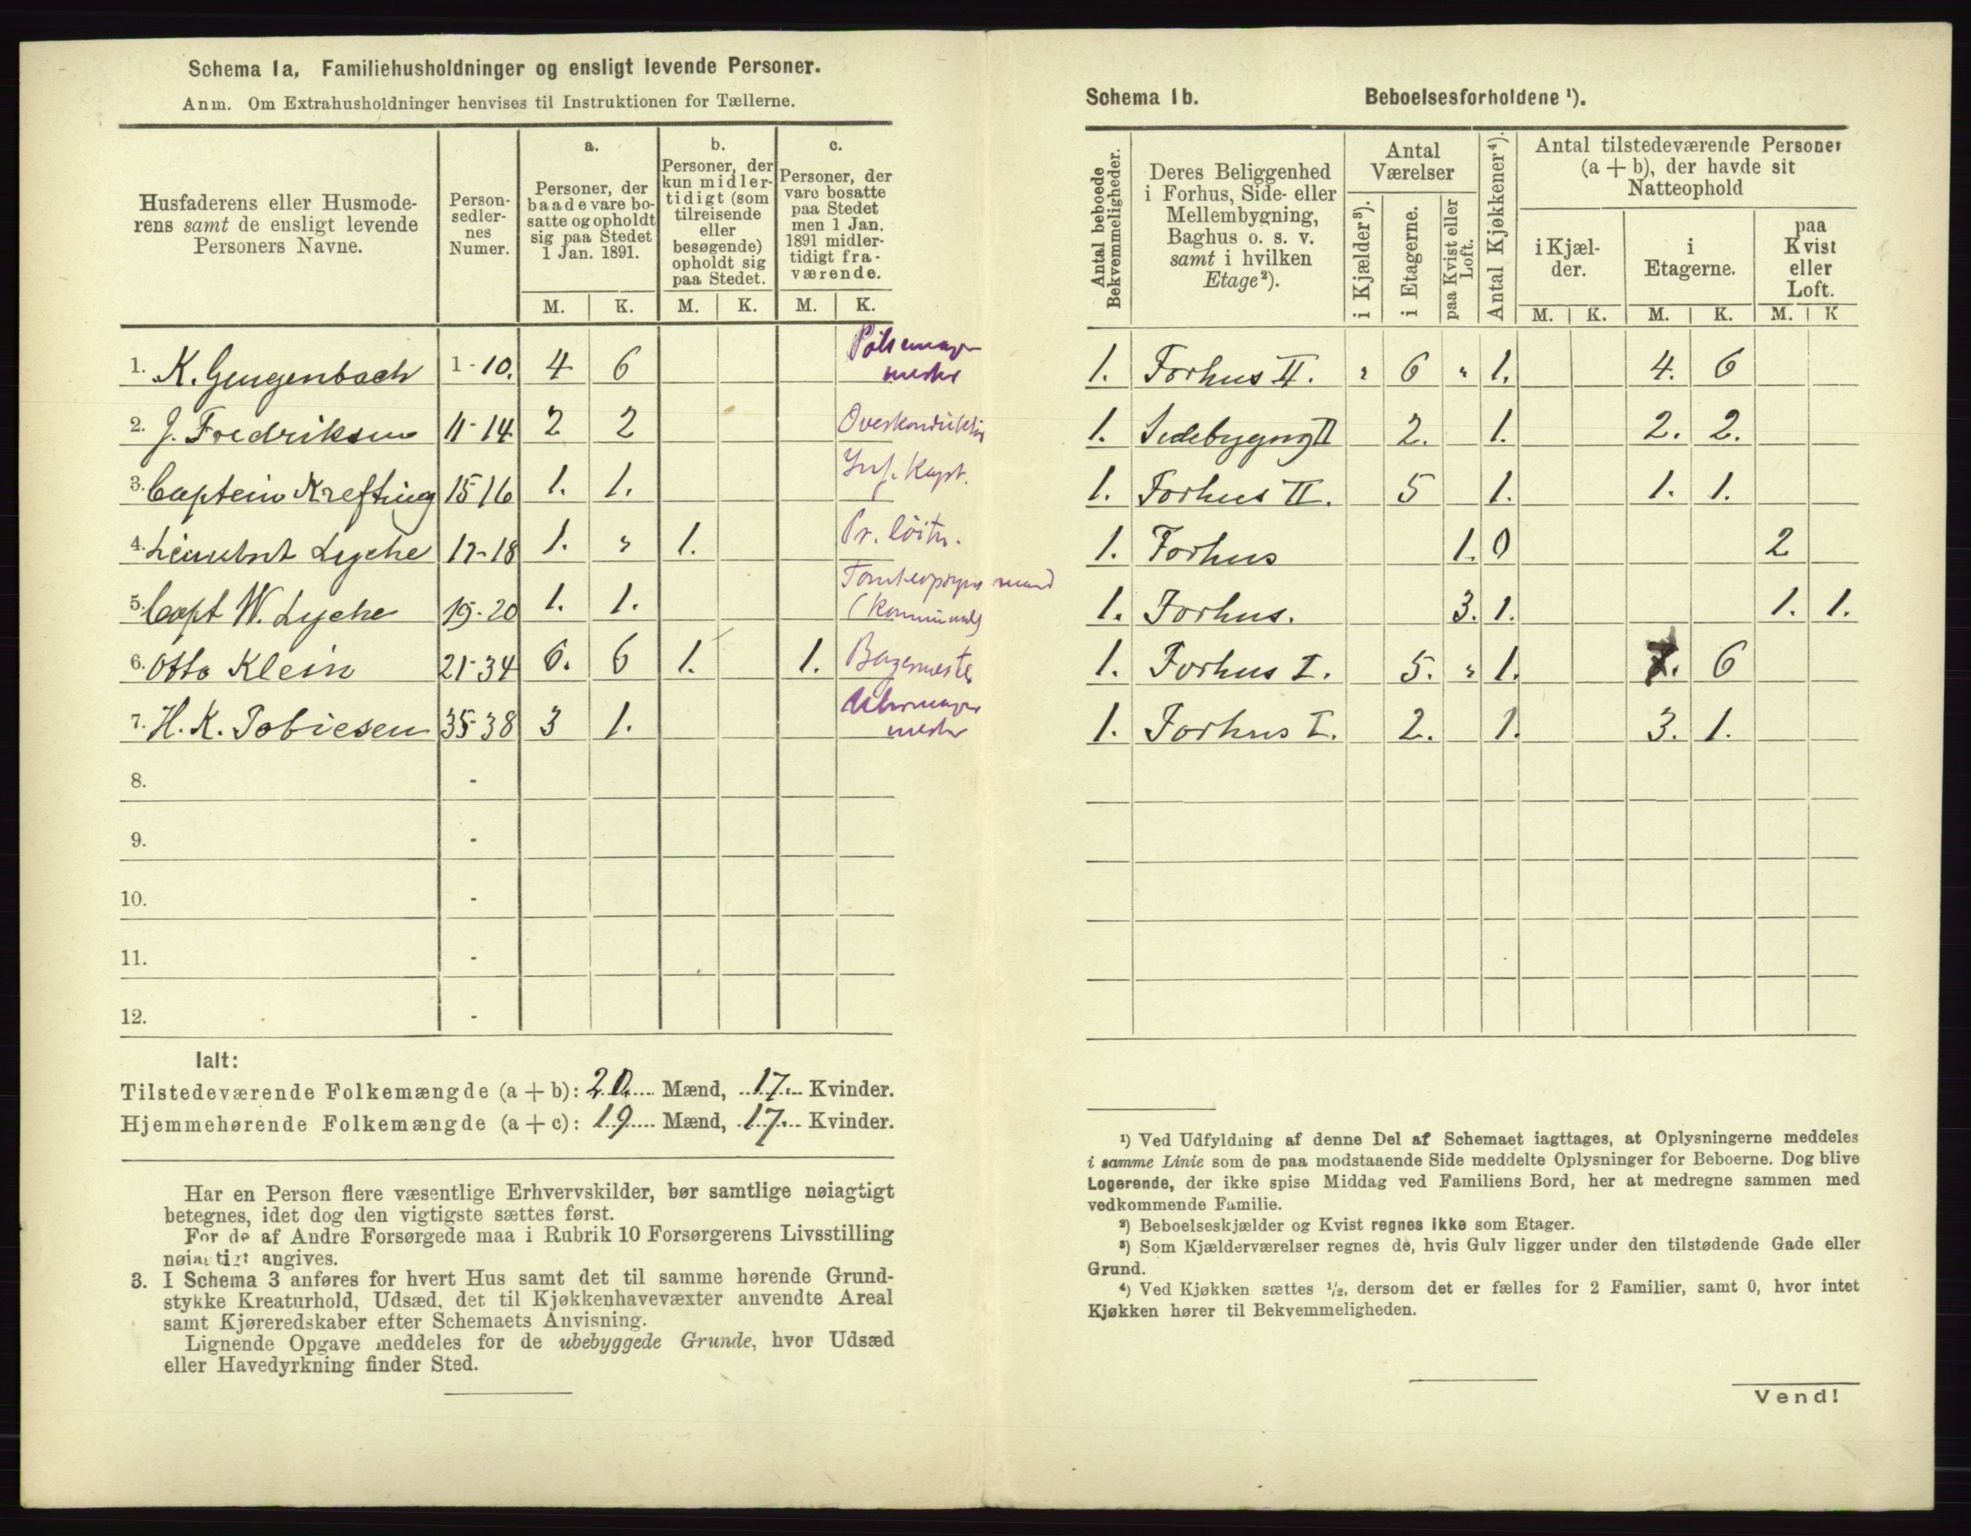 Schema 1a, Familiehusholdninger og ensligt levende Personer.
Anm. Om Extrahusholdninger henvises til Instruktionen for Tællerne.
Husfaderens eller Husmoderens samt de ensligt levende Personers Navne.
Personsedlernes Numer.
a.
Personer, der baade vare bosatte og opholdt sig paa Stedet 1 Jan. 1891.
b.
Personer, der kun midlertidigt (som tilreisende eller besøgende) opholdt sig paa Stedet.
c.
Personer, der vare bosatte paa Stedet men 1 Jan. 1891 midlertidigt fraværende.
M. K. M. K. M. K.
1. K. Gengenbach 1-10. 4 6 Pölsemager mester
2. J. Fredriksen 11-14 2 2 Overkonduktör
3. Captein Krefting 15-16 1. 1. Inf. Kapt.
4. Lieutnt Lyche 17-18 1. " 1. Pr. löitn.
5. Capt W. Lyche 19-20 1. 1. (kommunal)
6. Otto Klein 21-34 6. 6 1. 1. Bagermester
7. H. K. Tobiesen 35-38 3 1. Uhrmager mester
8. -
9. -
10. -
11. -
12. -
Ialt:
Tilstedeværende Folkemængde (a + b): 20 Mænd, 17 Kvinder.
Hjemmehørende Folkemængde (a + c): 19 Mænd, 17 Kvinder.
Har en Person flere væsentlige Erhvervskilder, bør samtlige nøiagtigt
betegnes, idet dog den vigtigste sættes først.
For de af Andre Forsørgede maa i Rubrik 10 Forsørgerens Livsstilling
nøiagtigt angives.
3. I Schema 3 anføres for hvert Hus samt det til samme hørende Grund-
stykke Kreaturhold, Udsæd, det til Kjøkkenhavevæxter anvendte Areal
samt Kjøreredskaber efter Schemaets Anvisning.
Lignende Opgave meddeles for de ubebyggede Grunde, hvor Udsæd
eller Havedyrkning finder Sted.
Schema 1b. Beboelsesforholdene ¹).
Antal beboede Bekvemmeligheder.
Deres Beliggenhed i Forhus, Side- eller Mellembygning, Baghus o. s. v. samt i hvilken Etage²).
Antal Værelser
i Kjælder³).
i Etagerne.
paa Kvist eller Loft.
Antal Kjøkkener⁴).
Antal tilstedeværende Personer (a + b), der havde sit Natteophold
i Kjælder.
i Etagerne.
paa Kvist eller Loft.
M. K. M. K. M. K
1. Forhus II. " 6 " 1. 4. 6
1. Sidebygng II 2. 1. 2. 2.
1. Forhus II. 5 1. 1. 1.
1. Forhus 1. 0 2
1. Forhus. 3. 1. 1. 1.
1. Forhus I. 5. " 1. 7. 6
1. Forhus I. 2. 1. 3. 1.
¹) Ved Udfyldning af denne Del af Schemaet iagttages, at Oplysningerne meddeles
i samme Linie som de paa modstaaende Side meddelte Oplysninger for Beboerne. Dog blive
Logerende, der ikke spise Middag ved Familiens Bord, her at medregne sammen med
vedkommende Familie.
²) Beboelseskjælder og Kvist regnes ikke som Etager.
³) Som Kjælderværelser regnes de, hvis Gulv ligger under den tilstødende Gade eller
Grund.
⁴) Ved Kjøkken sættes ½, dersom det er fælles for 2 Familier, samt 0, hvor intet
Kjøkken hører til Bekvemmeligheden.
Vend!